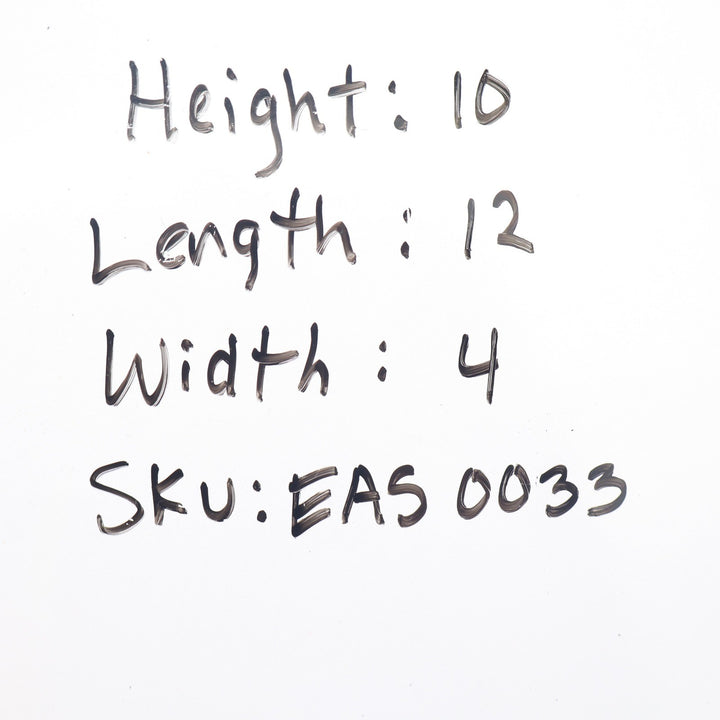 Height: 10
Length: 12
Width: 4
SKU: EAS 0033